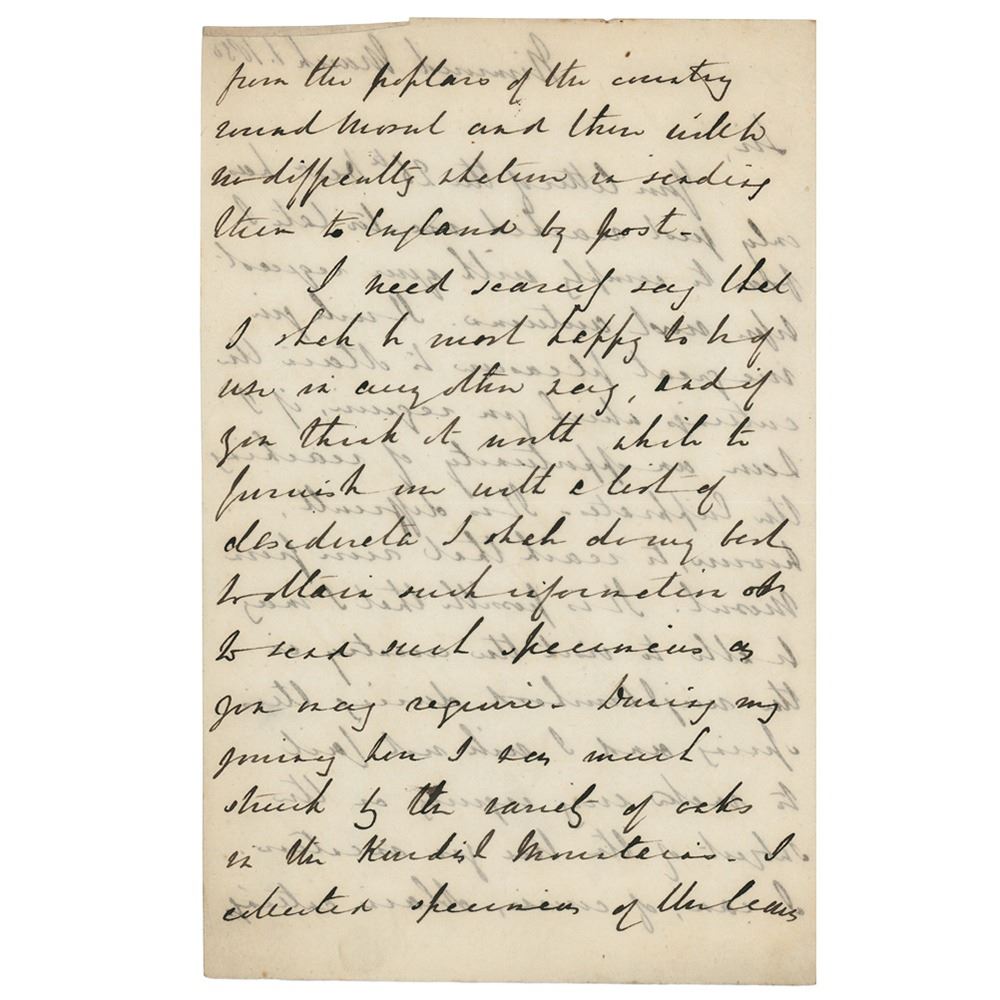 from the poplars of the country
round Mosul and there will be
no difficulty whatever in sending
them to England by post -
I need scarcely say that
I shall be most happy to be of
use in any other way, and if
you think it worth while to
furnish me with a list of
desiderata I shall do my best
to obtain such information or
to send such specimens as
you may require. During my
journey here I was much
struck by the variety of oaks
in the Kurdish Mountains. I
collected specimens of the leaves